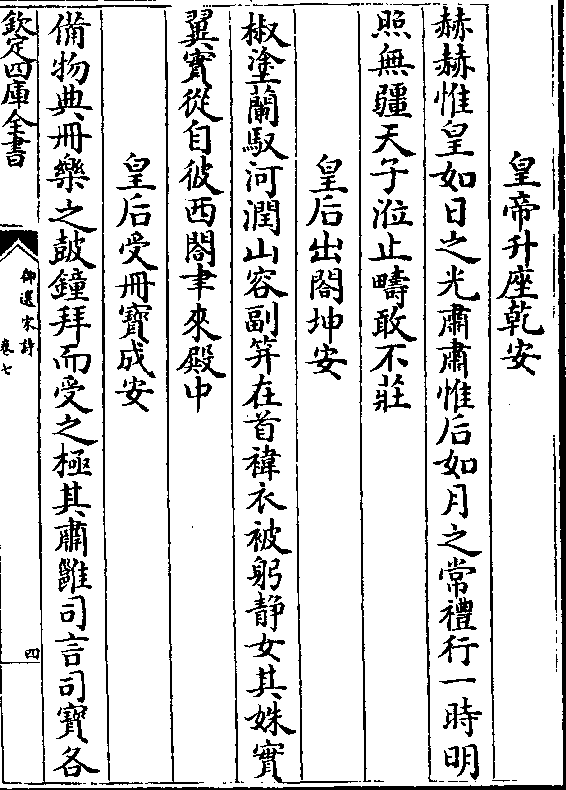 皇帝升座乾安
赫赫惟皇如日之光肅肅惟后如月之常禮行一時明
照無疆天子涖止疇敢不莊
皇后出閤坤安
椒塗蘭馭河潤山容副笄在首褘衣被躬静女其姝實
翼實從自彼西閤聿來殿中
皇后受冊寳成安
備物典冊樂之鼓鐘拜而受之極其肅雝司言司寶各
欽定四庫全書
御選宋詩
卷七
四